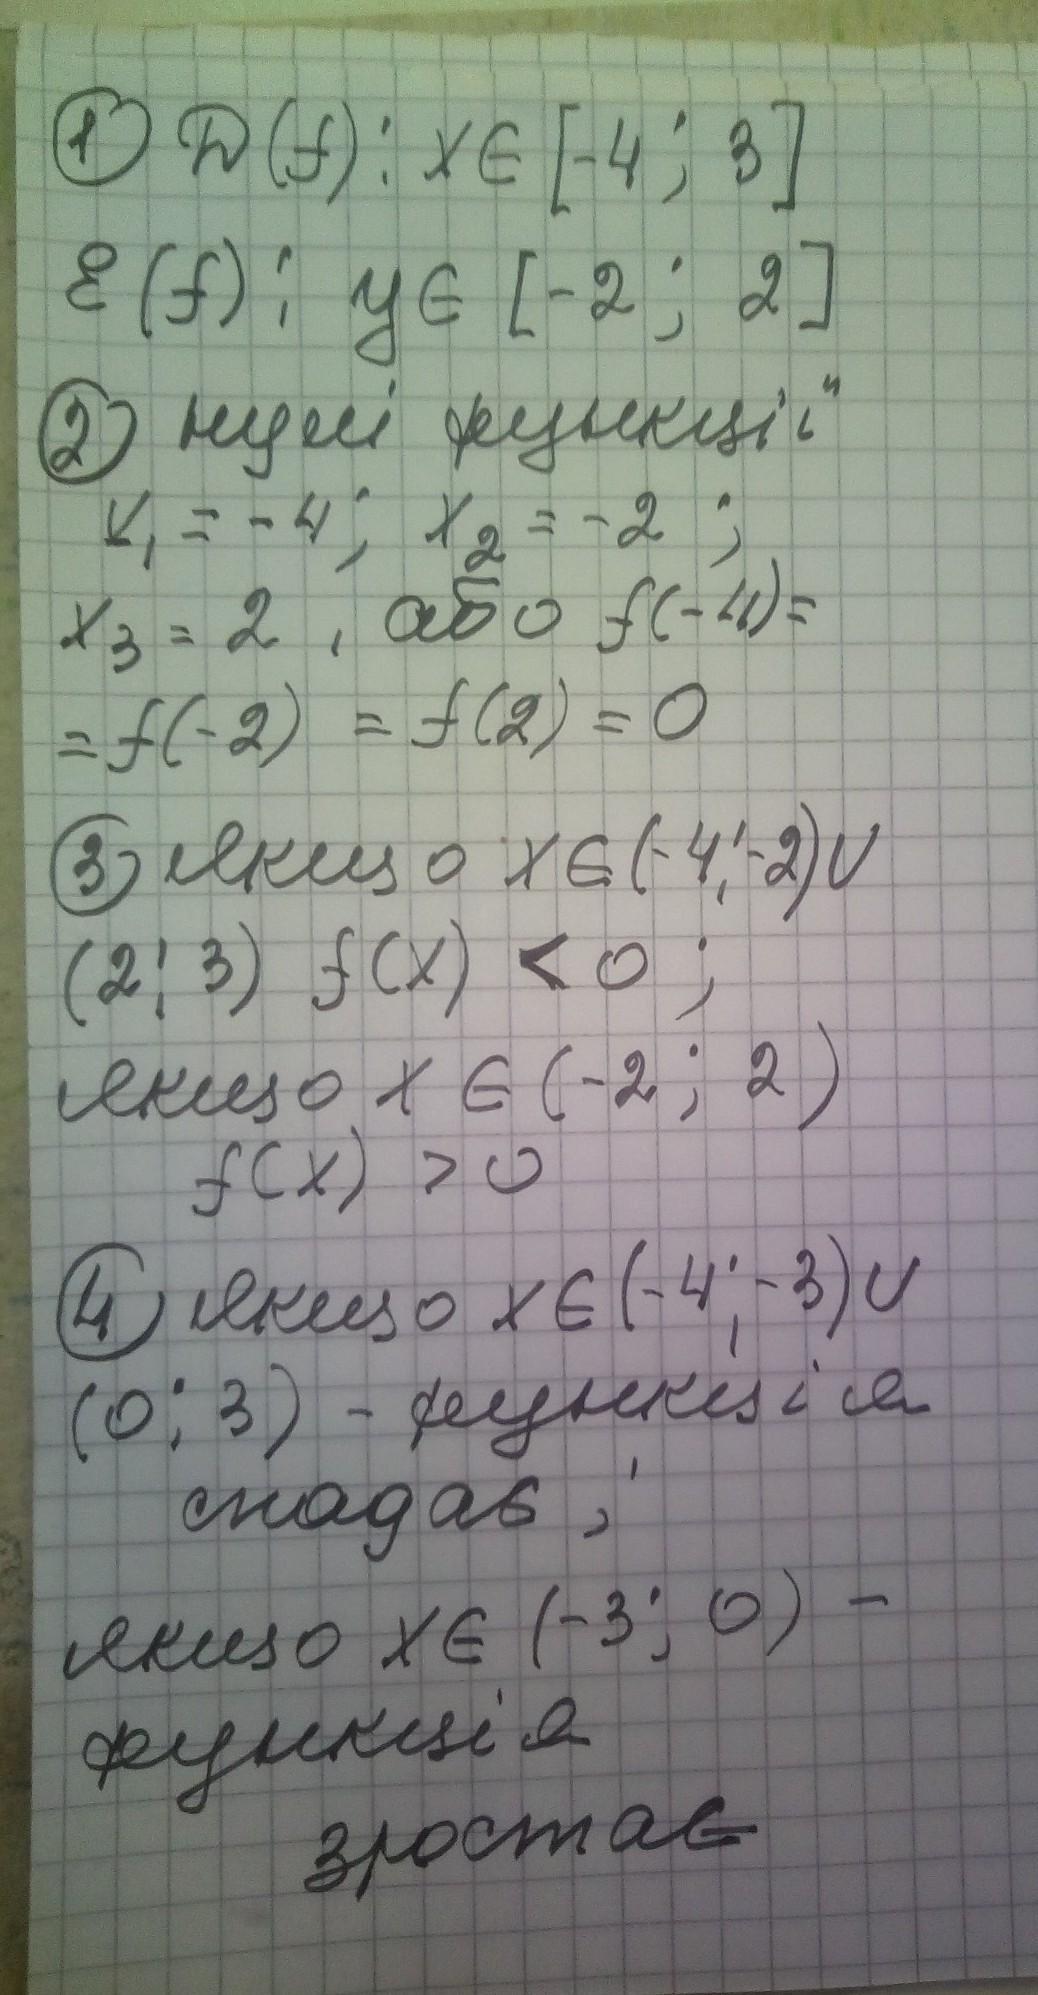 ① D(f): x∈[-4; 3]
E(f): y∈[-2; 2]
② нулі функції
x₁ = -4; x₂ = -2;
x₃ = 2, або f(-4)=
= f(-2) = f(2) = 0
③ якщо x∈(-4;-2)∪
(2; 3) f(x) < 0;
якщо x∈(-2; 2)
f(x) > 0
④ якщо x∈(-4;-3)∪
(0; 3) - функція
спадає;
якщо x∈(-3; 0) -
функція
зростає